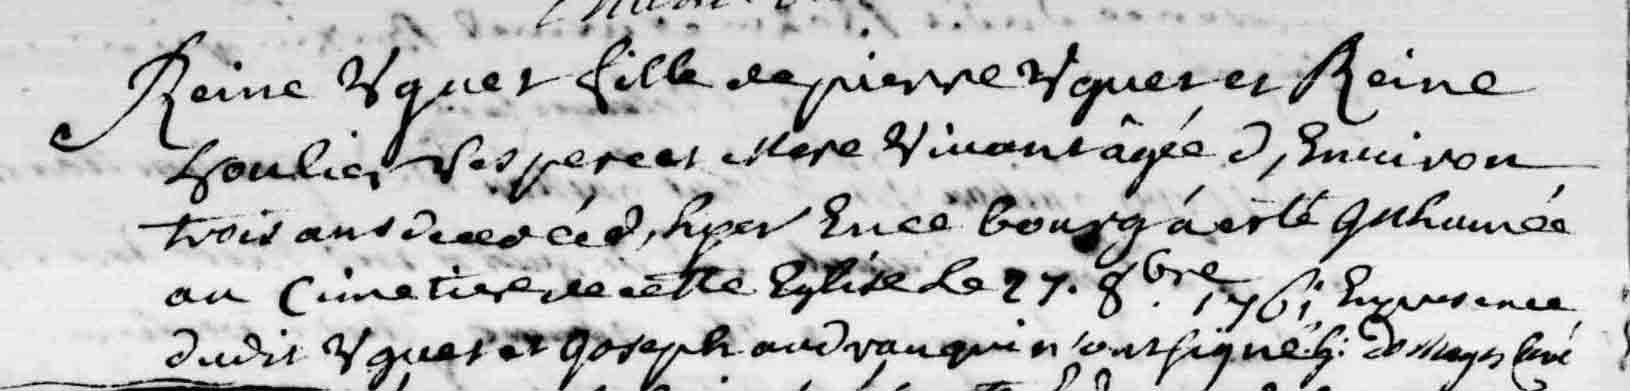 Reine Uguet fille de pierre Uguet et Reine
Houlier ses pere et Mere Vivant âgée d'Environ
trois ans decedéé d'hyer En ce bourg á esté Inhumée
au Cimetiere de cette Eglise le 27. 8bre 1761 En presence
dudit Uguet et Joseph audran qui n'ont signé